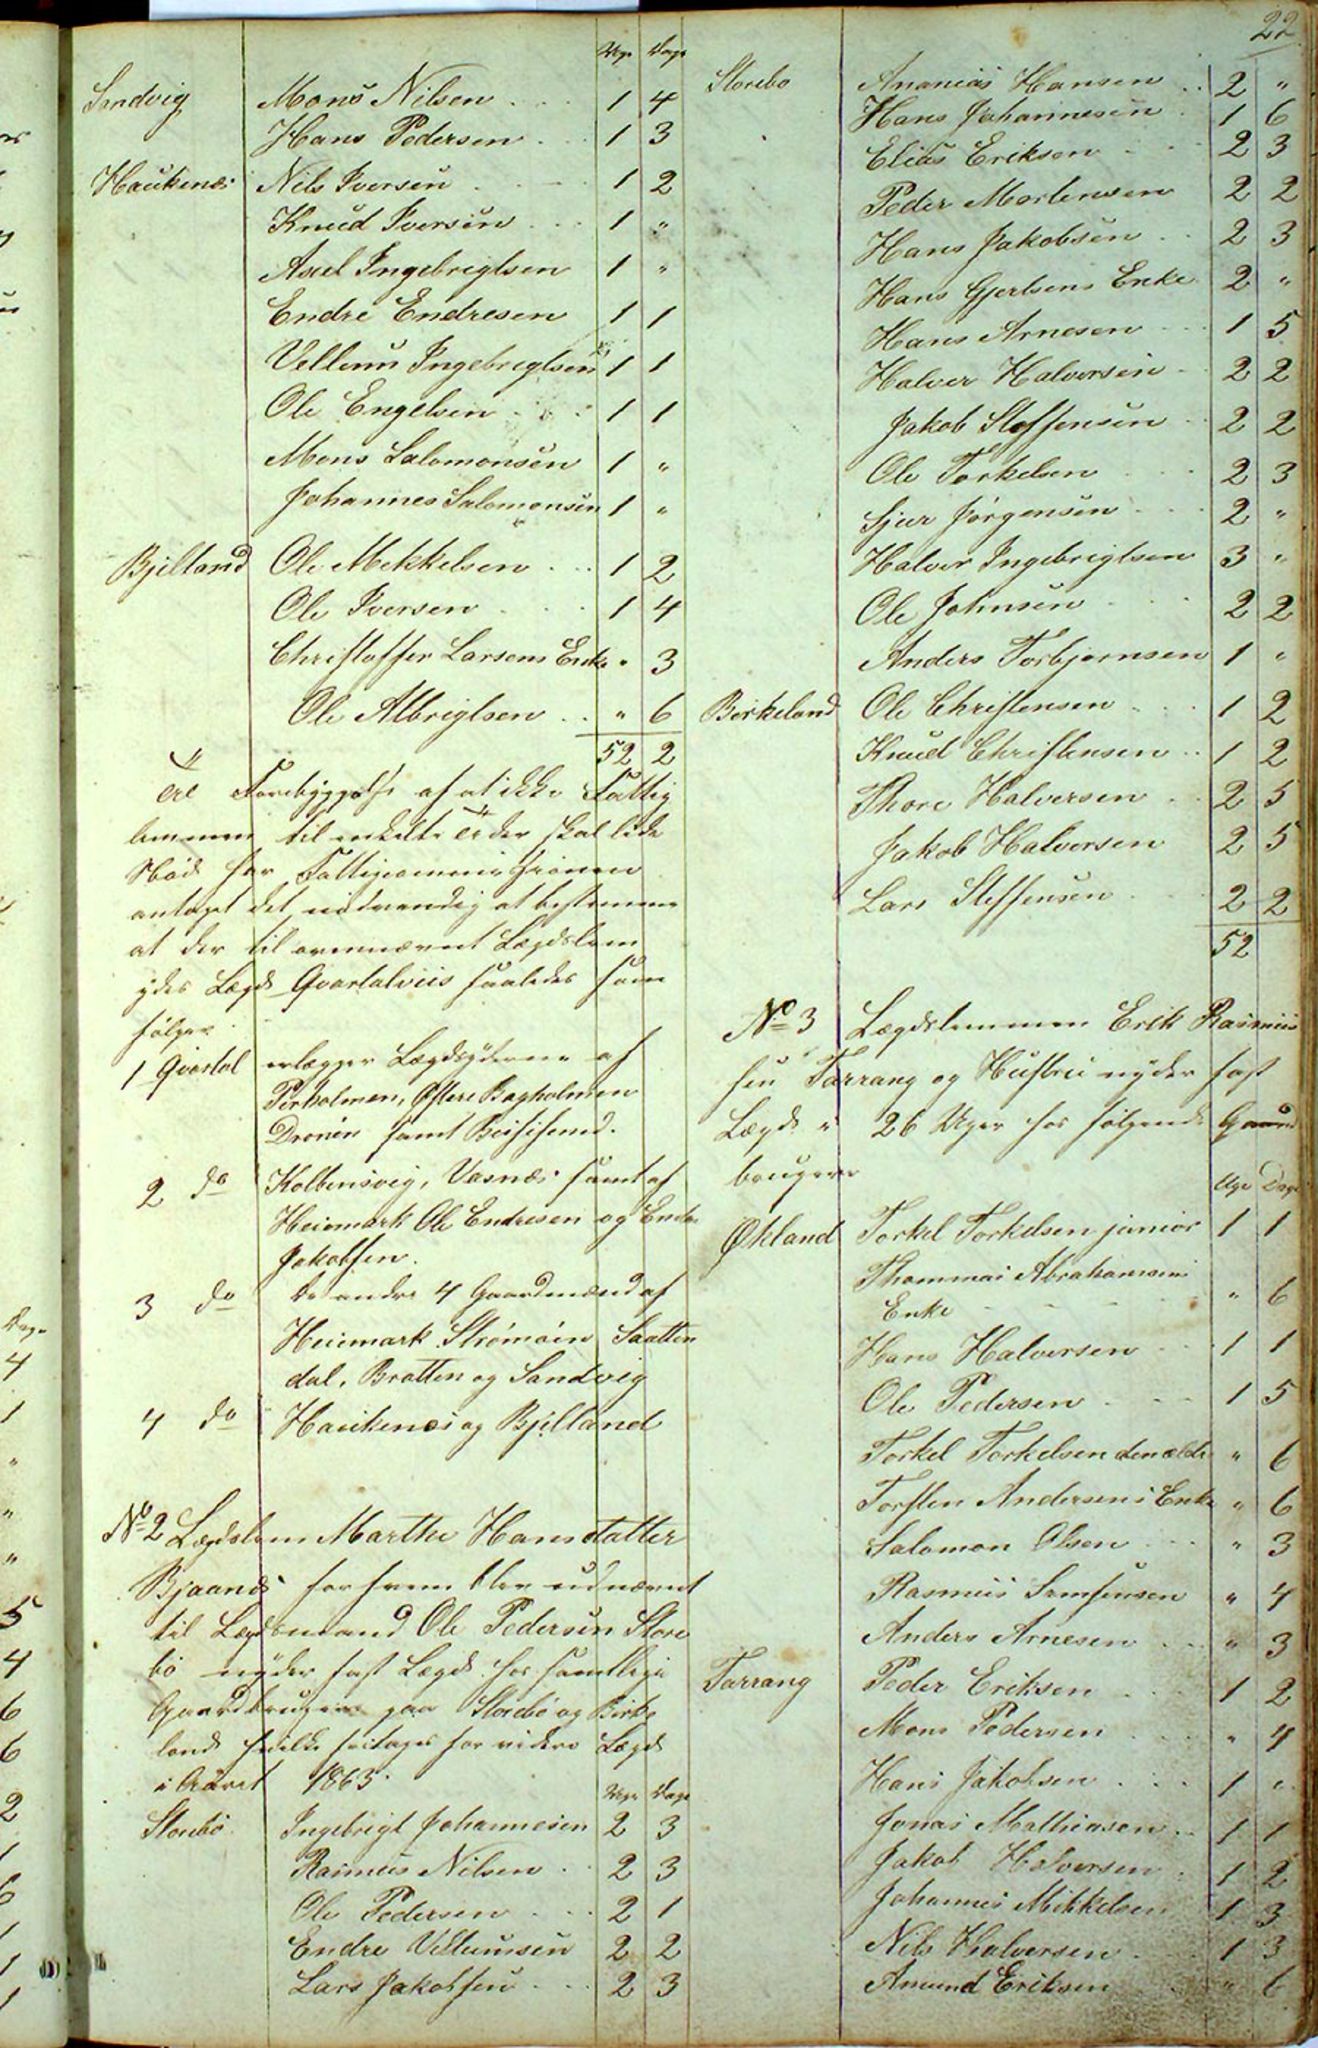 22
Uger Dage
Sandvig Mons Nilsen 1 4
Hans Pedersen 1 3
Haukenæs Nils Iversen 1 2
Knud Iversen 1 "
Axel Ingebrigtsen 1 "
Endre Endresen 1 1
Vellum Ingebrigtsen 1 1
Ole Engelsen 1 1
Mons Salomonsen 1 "
Johannes Salomonsen 1 "
Bjelland Ole Mekkelsen 1 2
Ole Iversen 1 4
Christoffer Larsens Enke " 3
Ole Albrigtsen " 6
52 2
Forebyggelse af at ikke Fattig
lemmen til enkelte Tider skal lide
Nød har Fattigcommissionen
antaget det nødvendig at bestemme
at der til ovennævnt Lægdslem
ydes Lægd Qvartalviis saaledes som
følger
1 Qvartal erlægger Lægdsyderne af
Perholmen, Østre Bagholmen
Drønen samt Beisisund.
2 do Kolbensvig, Vasnæs samt af
Heiemark Ole Endresen og Endre
Jakobsen.
3 do De andre 4 Gaardmænd af
Heiemark Strømøen Saatten
dal, Bratten og Sandvig
4 do Haukenæs og Bjelland
No 2 Lægdslem Marthe Hansdatter
Bjaanæs for hvem blev udnævnt
til Lægdsmand Ole Pedersen Store
bø nyder fast Lægd hos samtlige
Gaardbrugere paa Storebø og Birke
land hvilke fritages for videre Lægd
i Aaret 1863.
Uger Dage
Storebø Ingebrigt Johannesen 2 3
Rasmus Nilsen 2 3
Ole Pedersen 2 1
Endre Vellumsen 2 2
Lars Jakobsen 2 3
Storebø Ananias Hansen 2 "
Hans Johannesen 1 6
Elias Eriksen 2 3
Peder Mortensen 2 2
Hans Jakobsen 2 3
Hans Gjertsens Enke 2 "
Hans Arnesen 1 5
Halver Halversen 2 2
Jakob Steffensen 2 2
Ole Torkelsen 2 3
Sjur Jørgensen 2 "
Halver Ingebrigtsen 3 "
Ole Johnsen 2 2
Anders Torbjørnsen 1 "
Berkeland Ole Christensen 1 2
Knud Christensen 1 2
Thore Halversen 2 5
Jakob Halversen 2 5
Lars Steffensen 2 2
52
No 3 Lægdslemmen Erik Rasmus
sen Tarrang og Hustru nyder fast
Lægd i 26 Uger hos følgende Gaard
brugere
Uger Dage
Økland Torkel Torkelsen junior 1 1
Thommas Abrahamsens
Enke " 6
Hans Halversen 1 1
Ole Pedersen 1 5
Torkel Torkelsen den ældre " 6
Torsten Andersens Enke " 6
Salomon Olsen " 3
Rasmus Samsensen " 4
Anders Arnesen " 3
Tarrang Peder Eriksen 1 2
Mons Pedersen " 4
Hans Jakobsen 1 "
Jonas Mathiasen 1 1
Jakob Halversen 1 2
Johannes Mikkelsen 1 3
Nils Halversen 1 3
Amund Eriksen " 6